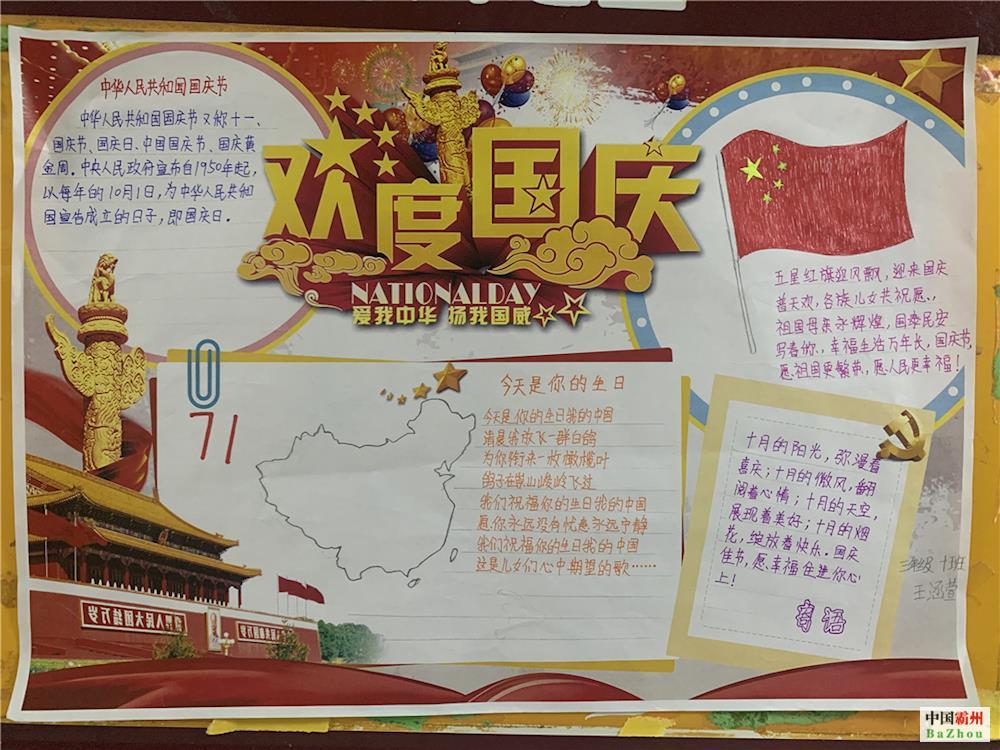 中华人民共和国国庆节
中华人民共和国国庆节又称十一、
国庆节、国庆日、中国国庆节、国庆黄
金周。中央人民政府宣布自1950年起,
以每年的10月1日,为中华人民共和
国宣告成立的日子,即国庆日。
欢度国庆
NATIONALDAY
爱我中华 扬我国威
五星红旗迎风飘,迎来国庆
普天欢,各族儿女共祝愿、,
祖国母亲永辉煌,国泰民安
写春秋、,幸福生活万年长,国庆节,
愿祖国更繁荣,愿人民更幸福!
71
今天是你的生日
今天是你的生日我的中国
清晨我放飞一群白鸽
为你衔来一枚橄榄叶
鸽子在崇山峻岭飞过
我们祝福你的生日我的中国
愿你永远没有忧患永远宁静
我们祝福你的生日我的中国
这是儿女们心中期望的歌……
十月的阳光,弥漫着
喜庆;十月的微风,翻
阅着心情;十月的天空,
展现着美好;十月的烟
花,绽放着快乐。国庆
佳节,愿幸福住进你心
上!
寄语
三年级 十班
王涵萱
岁万结团大民人界世
中国霸州
BaZhou